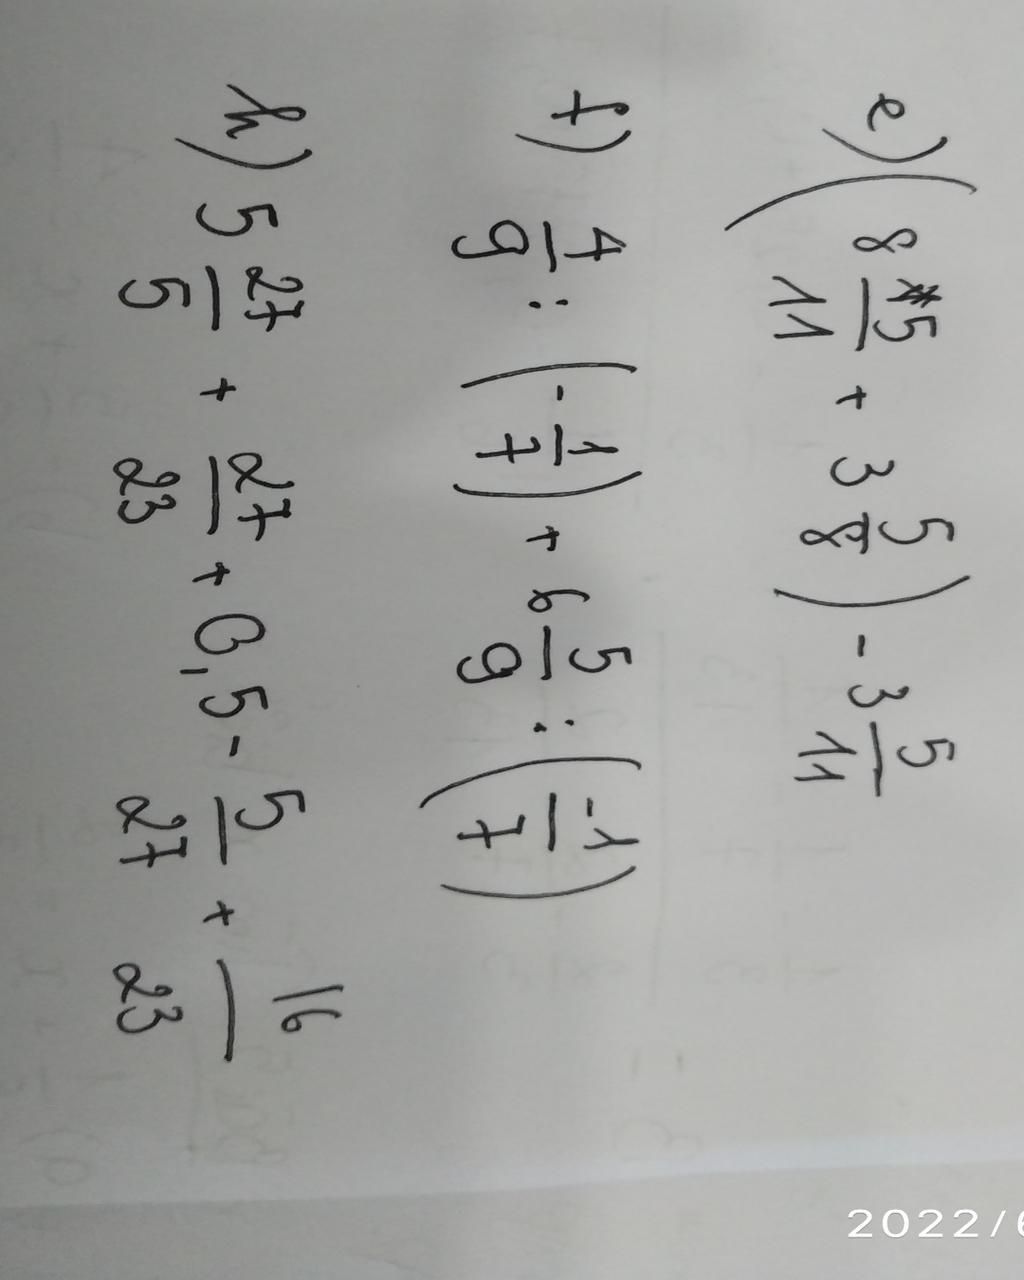 e) (8 5/11 + 3 5/8) - 3 5/11
f) 4/9 : (- 1/7) + 6 5/9 : (-1/7)
h) 5 27/5 + 27/23 + 0,5 - 5/27 + 16/23
2022/6